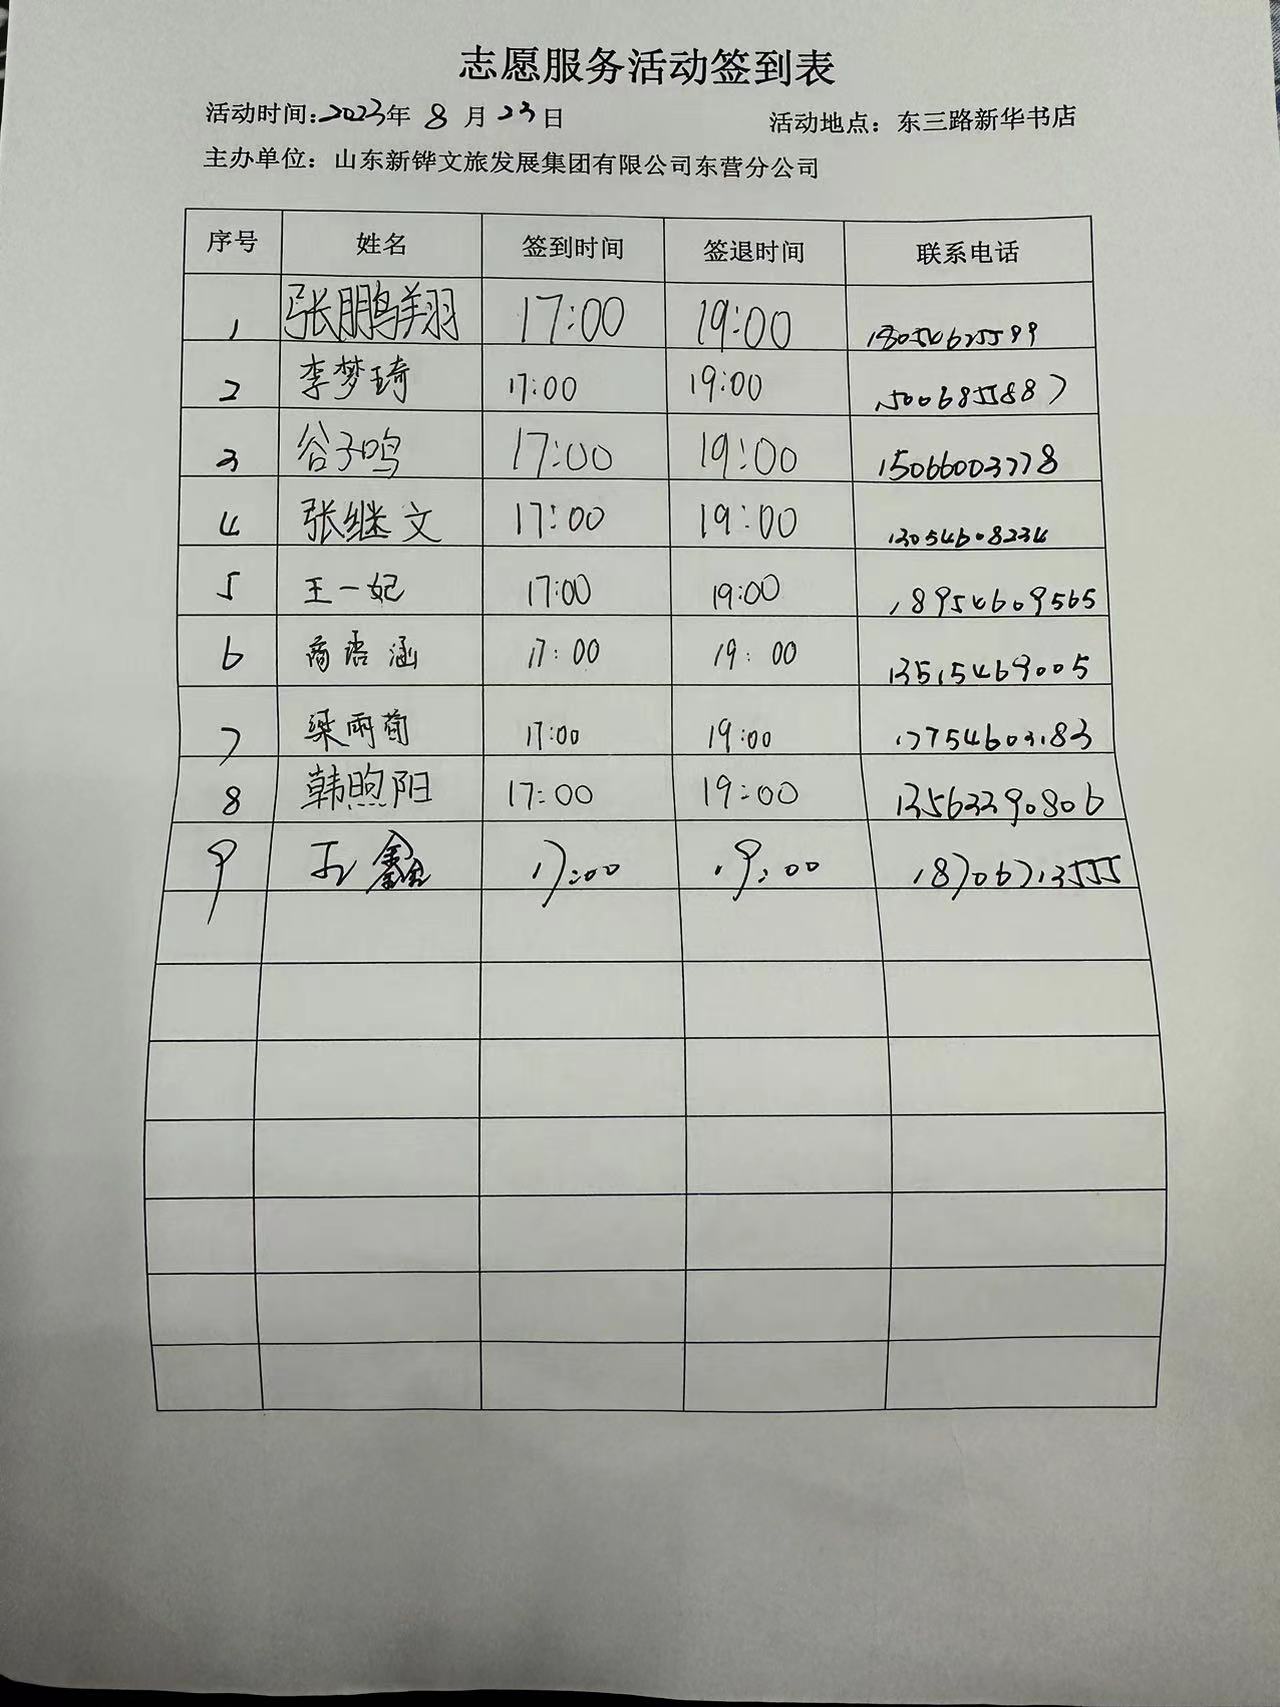 志愿服务活动签到表
活动时间:2023年 8 月 23 日 活动地点：东三路新华书店
主办单位：山东新铧文旅发展集团有限公司东营分公司
序号 姓名 签到时间 签退时间 联系电话
1 张鹏翔 17:00 19:00 18054625599
2 李梦琦 17:00 19:00 15006855887
3 谷子鸣 17:00 19:00 15066003778
4 张继文 17:00 19:00 13054608234
5 王一妃 17:00 19:00 18954609565
6 商语涵 17:00 19:00 13515469005
7 梁雨荀 17:00 19:00 17754603183
8 韩煦阳 17:00 19:00 13563390806
9 鑫 17:00 19:00 18706713555